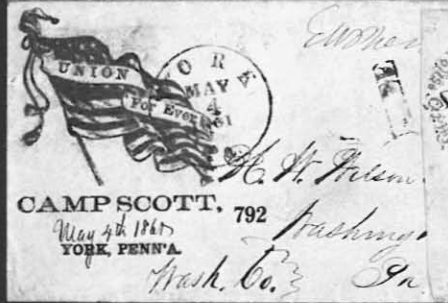 UNION
For Ever
YORK
MAY
4
CAMP SCOTT,
792
May 4th 1861
YORK, PENN'A.
H. W. Wilson
Washing
Wash. Co.
Pa